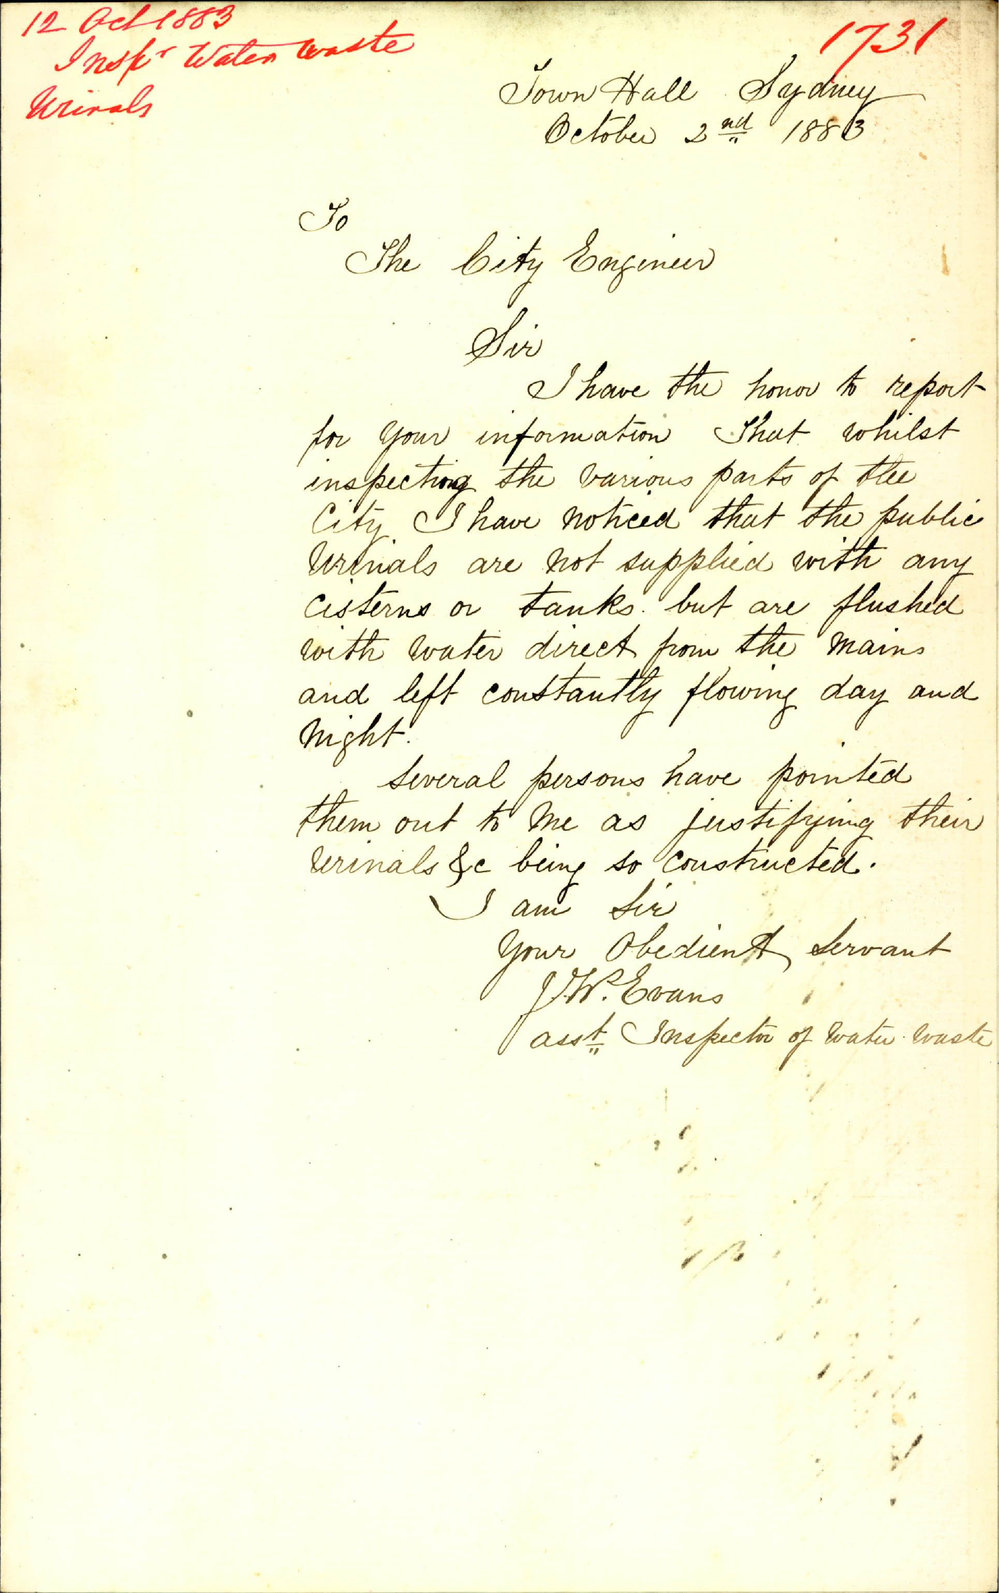 12 Oct 1883
Inspr Water Waste
Urinals
1731
Town Hall Sydney
October 2nd 1883
To
The City Engineer
Sir
I have the honor to report
for your information that whilst
inspecting the various parts of the
City I have noticed that the public
Urinals are not supplied with any
Cisterns or tanks but are flushed
with water direct from the mains
and left constantly flowing day and
Night.
Several persons have pointed
them out to me as justifying their
Urinals &c being so constructed.
I am Sir
Your Obedient Servant
J.W. Evans
asst Inspector of Water Waste